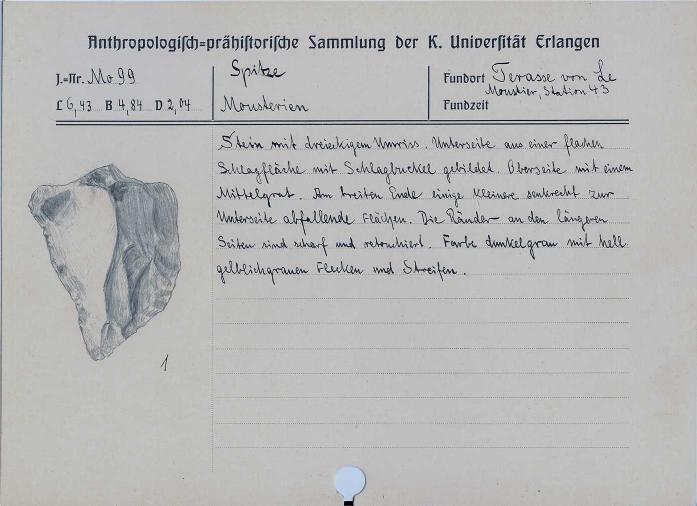 Anthropologisch=prähistorische Sammlung der K. Universität Erlangen
J.=Nr. Mo 99
L 6,43 B 4,84 D 2,04
Spitze
Mousterien
Fundort Terasse von Le
Moustier, Station 43
Fundzeit
Stein mit dreieckigem Umriss. Unterseite aus einer flachen
Schlagfläche mit Schlagbuckel gebildet. Oberseite mit einem
Mittelgrat. Am breiten Ende einige kleinere senkrecht zur
Unterseite abfallende Flächen. Die Ränder an den längeren
Seiten sind scharf und retouchiert. Farbe dunkelgrau mit hell
gelblichgrauen Flecken und Streifen.
1